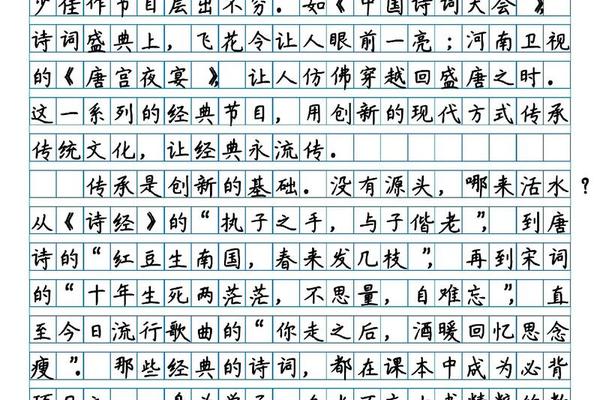 少佳作节目层出不穷。如《中国诗词大会》,
诗词盛典上，飞花令让人眼前一亮；河南卫视
的《唐宫夜宴》，让人仿佛穿越回盛唐之时．
这一系列的经典节目，用创新的现代方式传承
传统文化，让经典永流传．
传承是创新的基础．没有源头，哪来活水？
从《诗经》的“执子之手，与子偕老”，到唐
诗的“红豆生南国，春来发几枝”，再到宋词
的“十年生死两茫茫，不思量，自难忘”，直
至今日流行歌曲的“你走之后，酒暖回忆思念
瘦”．那些经典的诗词，都在课本中成为必背